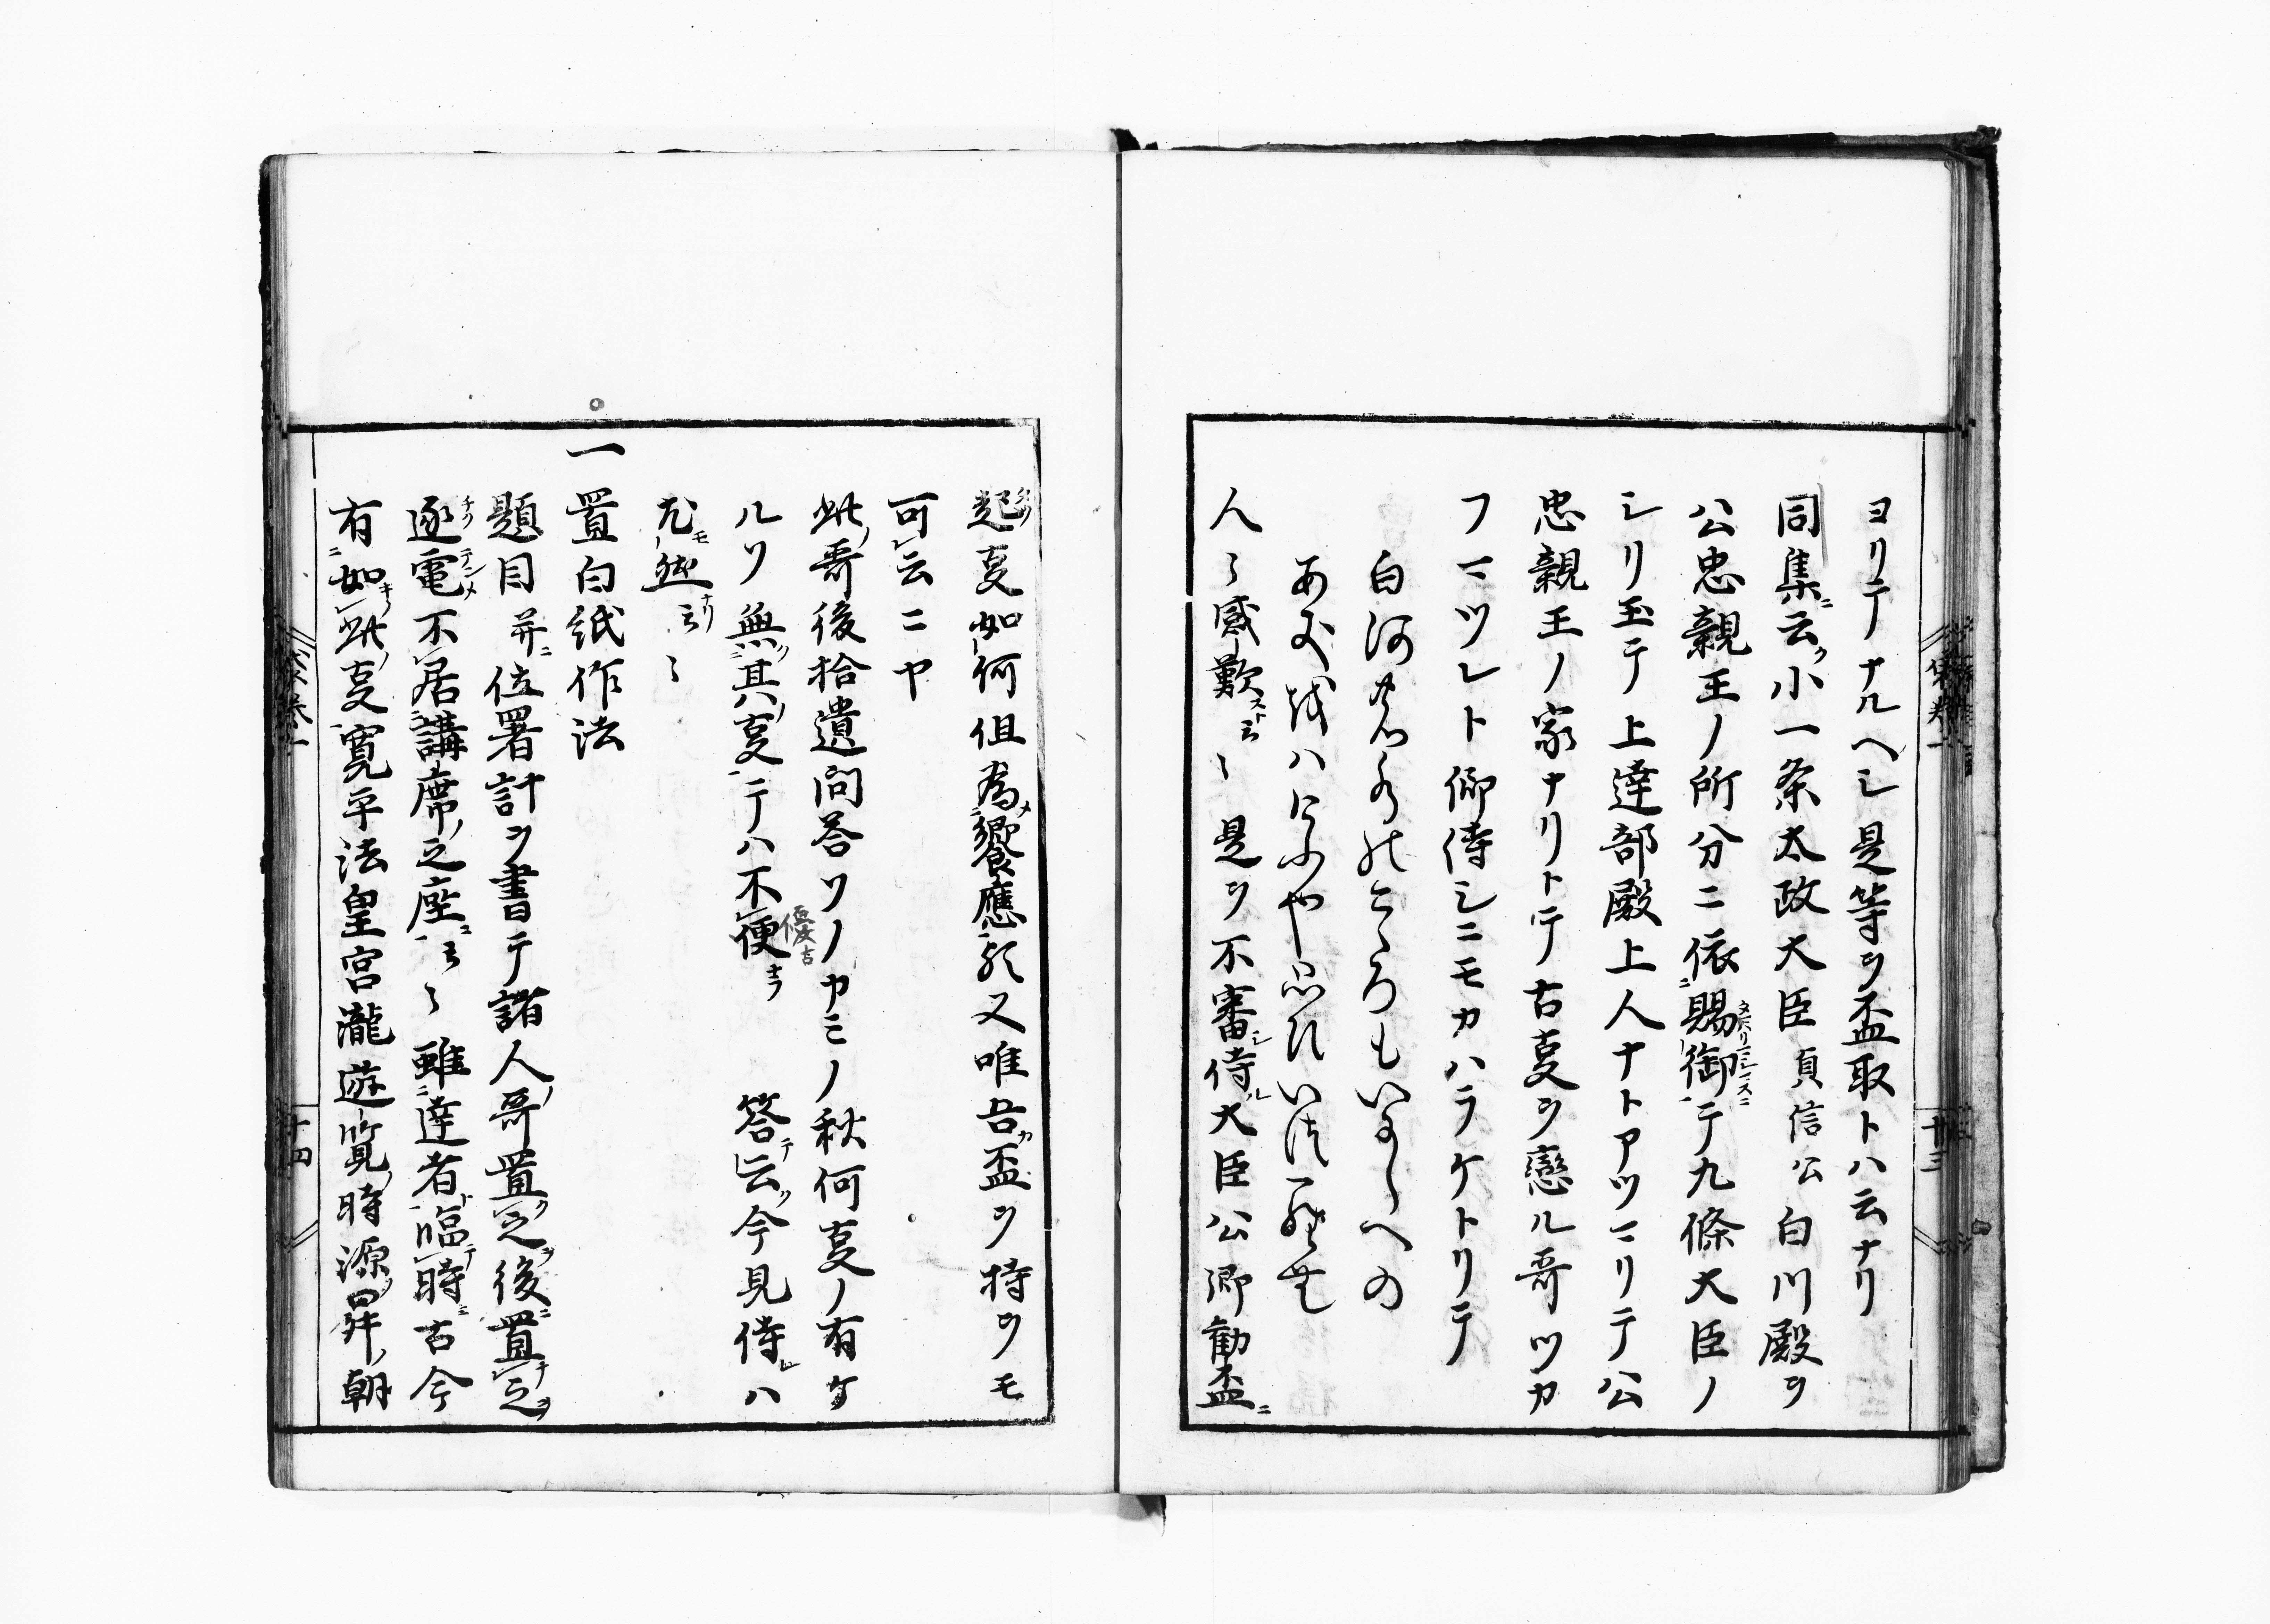 ヨリテナルヘシ是等ヲ盃取トハ云ナリ
同集ニ云ク小一条太政大臣貞信公白川殿ヲ
公忠親王ノ所分ニ依ニ賜御テ九條大臣ノ
シリ玉テ上達部殿上人ナトアツマリテ公
忠親王ノ家ナリトテ古事ヲ戀ル哥ツカ
フマツレト仰侍シニモカハラケトリテ
白河
人々感歎スト云々是ヲ不審シ侍ル大臣公卿勧盃ニ
起事如何但為メ饗應ノ歟又唯吾カ盃ヲ持ツモ
可云ニヤ
此ノ哥後拾遺問答ソノカミノ秋何事ノ有ケ
ルソ無ハ其ノ事テハ不便キラ
優古
答テ云ク今見侍レハ
尤モ然ナリ云々
一置白紙作法
題目并ニ位署計ヲ書テ諸人ノ哥置ク之ヲ後ニ置ナ之ヲ
逐電テンメ不居講席ノ之座ニ云々雖達者ト臨テ時ニ古今
有ニ如キ此ノ事寛平法皇宮瀧遊覧ノ時源ノ昇ノ朝
十三
十四